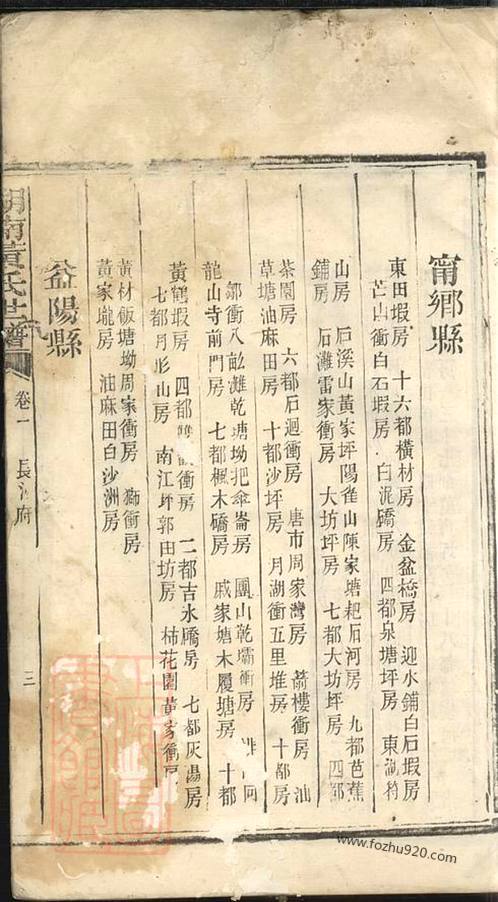 甯鄉縣
東田塅房 十六都橫材房 金盆橋房 迎水鋪白石塅房
芒山衝白石塅房 白泥礄房 四都泉塘坪房 東湖
山房 石溪山黃家坪陽雀山陳家塘耙石河房 九都芭蕉
鋪房 石灘雷家衝房 大坊坪房 七都大坊坪房 四都
茶園房 六都石迴衝房 唐市周家灣房 箭樓衝房 汕
草塘油麻田房 十都沙坪房 月湖衝五里堆房 十都房
鄒衝八畝灘乾塘坳把傘崙房 團山乾壩衝房
龍山寺前門房 七都楓木礄房 戚家塘木履塘房 十都
黃鶴塅房 四都 衝房 二都吉水礄房 七都灰湯房
七都月形山房 南江坪郭田坊房 柿花園黃家衝房
黃材飯塘坳周家衝房 獅衝房
黃家壠房 油麻田白沙洲房
益陽縣
湖南黃氏世譜 卷一 長沙府 三
www.fozhu920.com